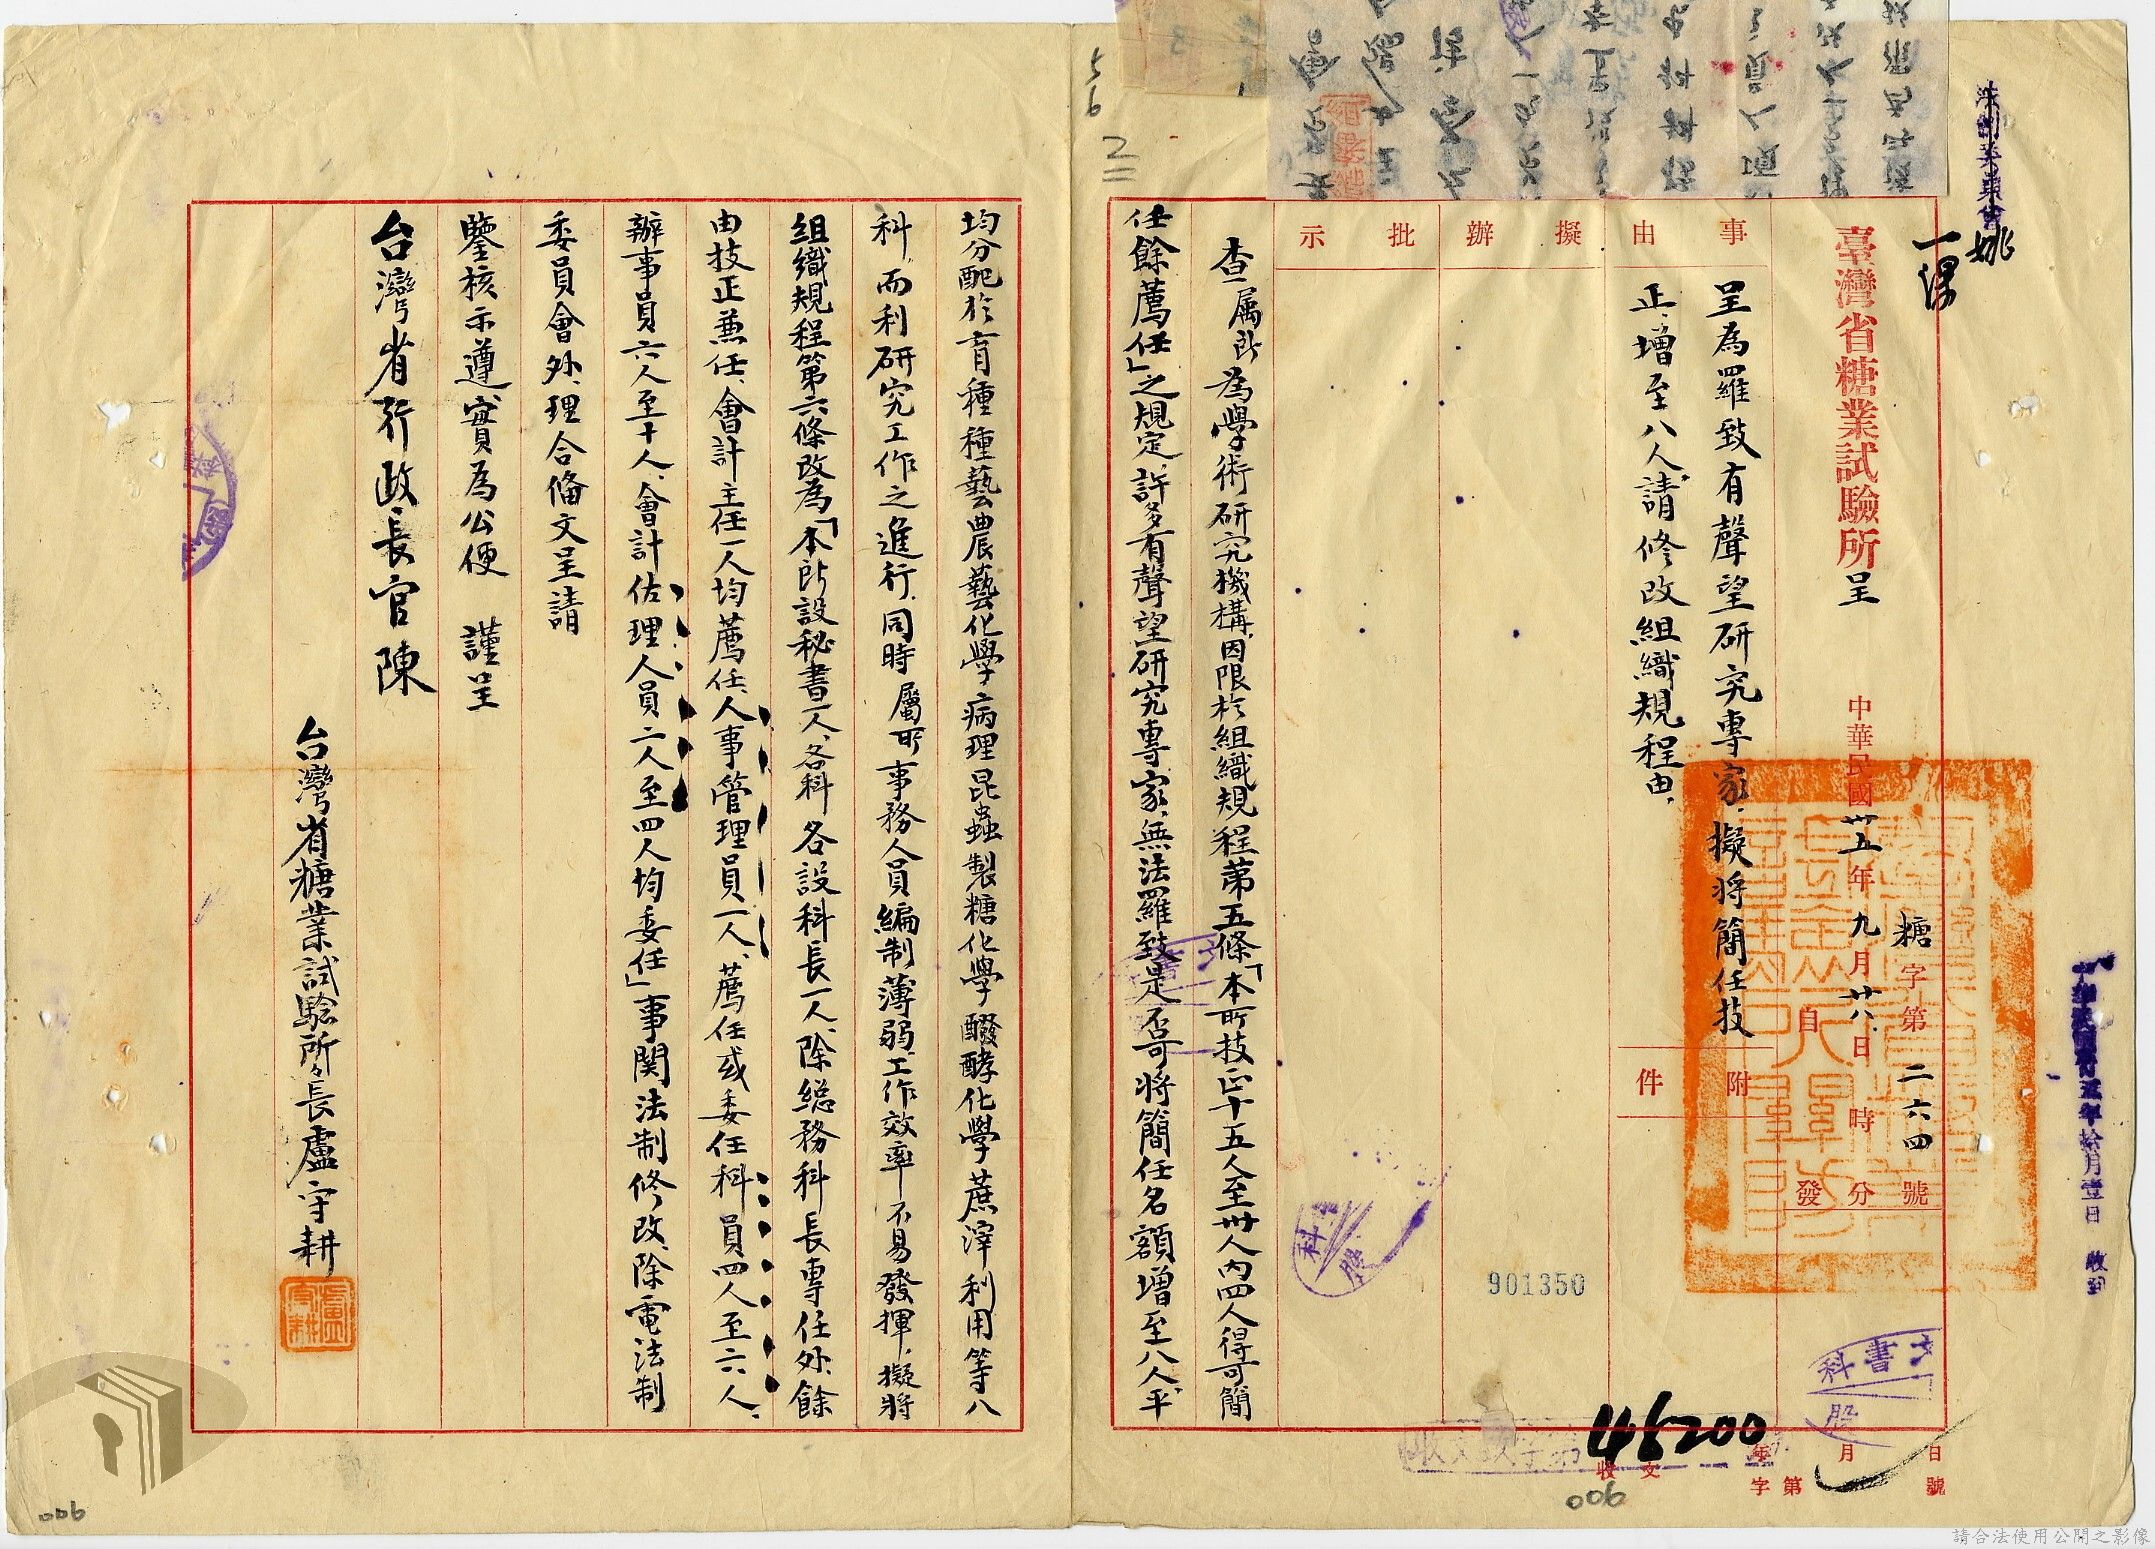 法制委員會
姚
一課
臺灣省糖業試驗所呈
糖字第二六四號
中華民國卅五年九月廿八日 時 分
自 發
事由
呈為羅致有聲望研究專家，擬將簡任技
正增至八人，請修改組織規程由。
附件
擬辦
批示
查屬所為學術研究機構，因限於組織規程第五條「本所技正十五人至卅人內四人得可簡
任餘薦任」之規定，許多有聲望研究專家，無法羅致，是否可將簡任名額增至八人，平
均分配於育種種藝農藝化學病理昆蟲製糖化學醱酵化學蔗滓利用等八
科，而利研究工作之進行，同時屬所事務人員編制薄弱，工作效率不易發揮，擬將
組織規程第六條改為「本所設秘書一人、各科各設科長一人、除總務科長專任外、餘
由技正兼任、會計主任一人均薦任、人事管理員一人、薦任或委任科員四人至六人、
辦事員六人至十人、會計佐理人員二人至四人均委任」事関法制修改、除電法制
委員會外、理合備文呈請
鑒核示遵、實為公便 謹呈
台灣省行政長官陳
台灣省糖業試驗所所長盧守耕
盧守耕
中華民國卅五年拾月壹日 收到
901350
文書科
股
科
股
46200
收文 字第 號
年 月 日
006
006
56
2
請合法使用公開之影像